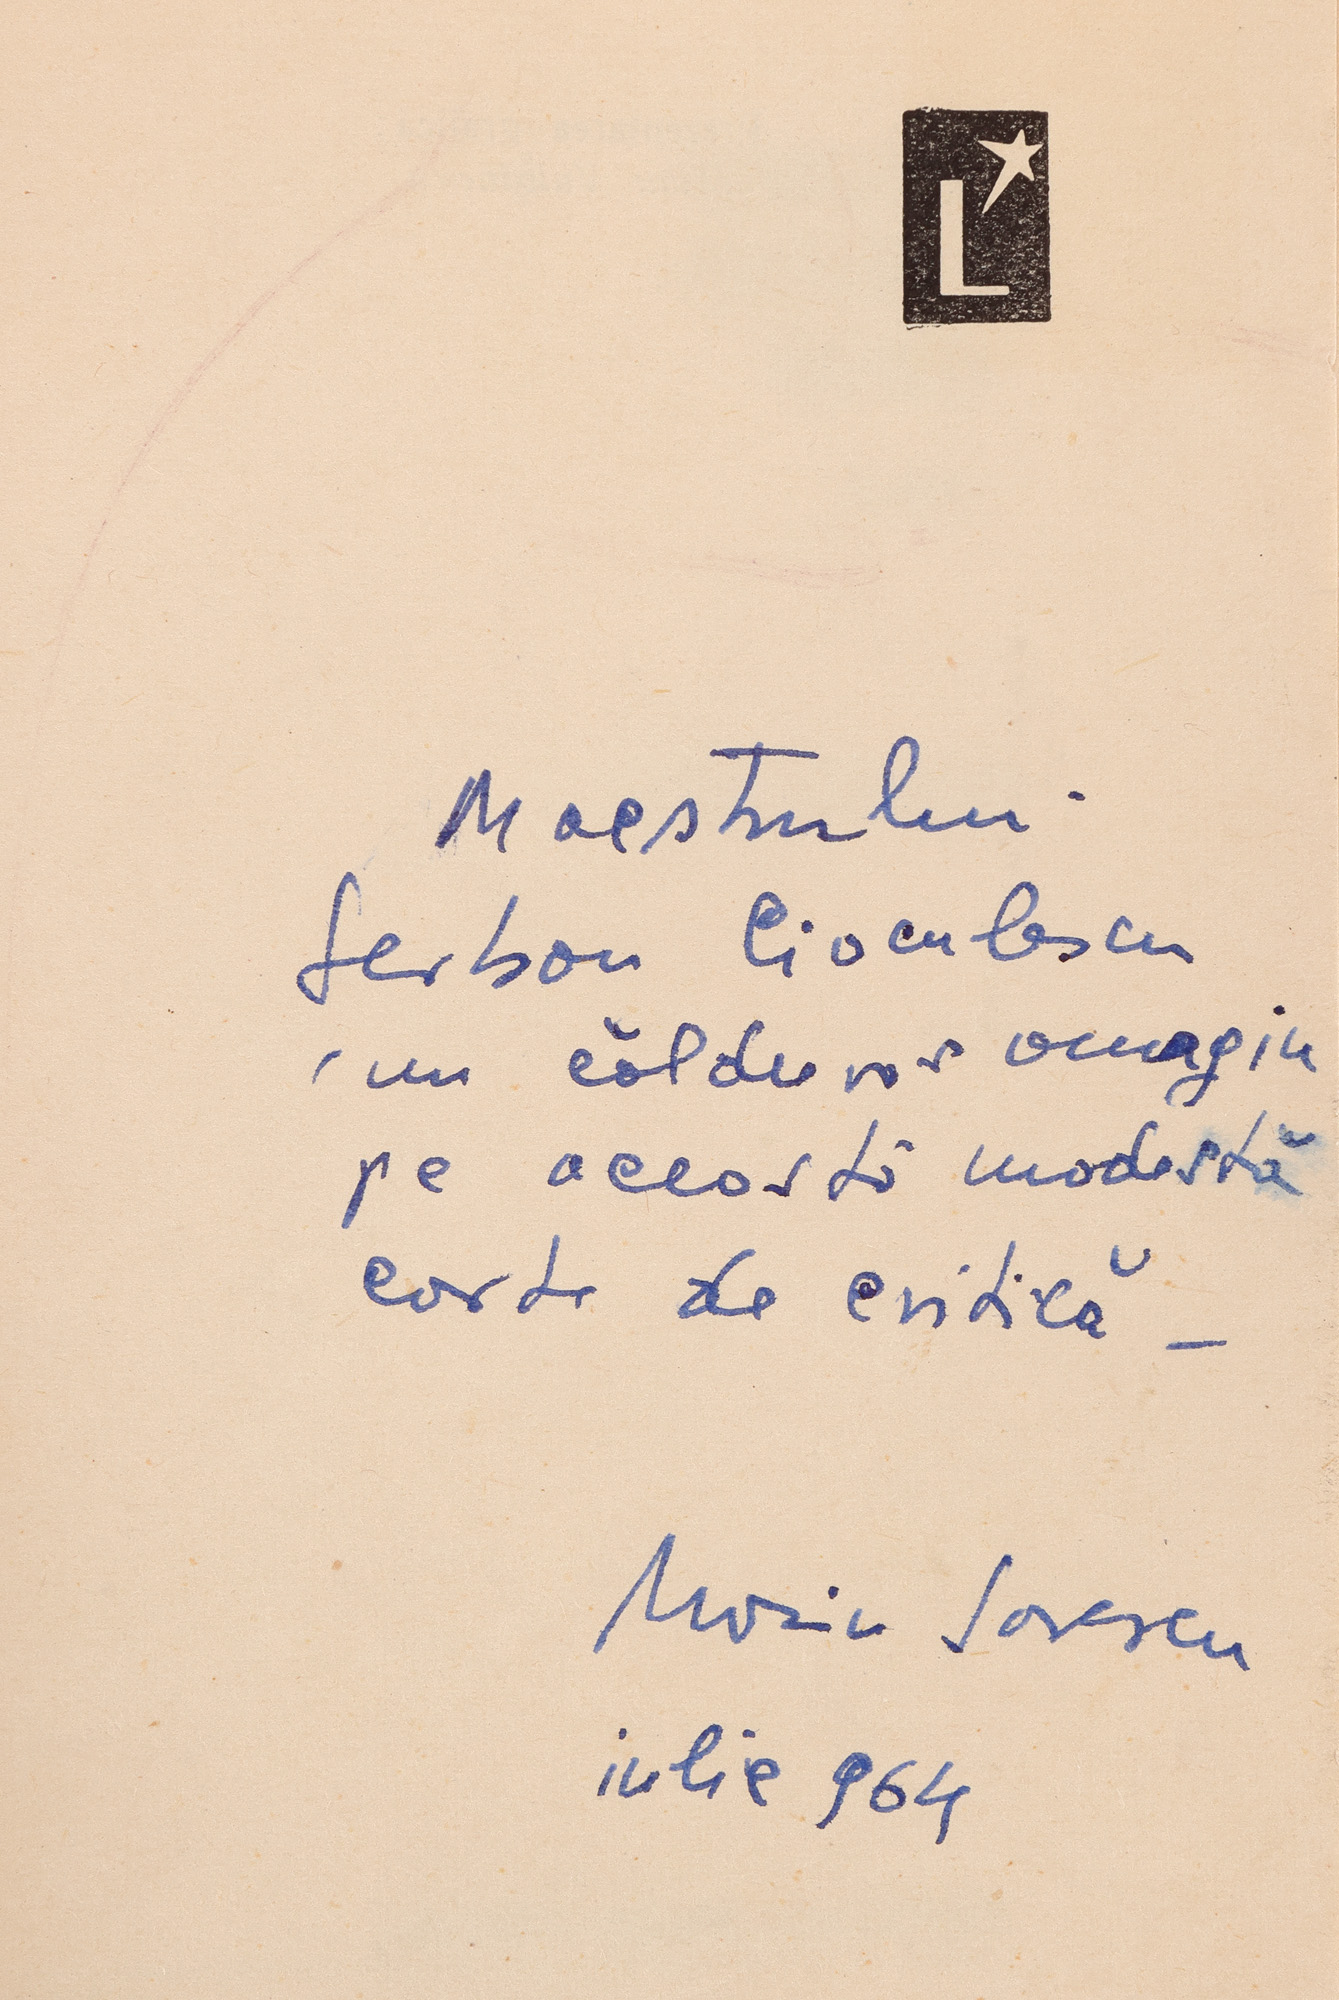 L
Maestrului
Șerban Cioculescu
un călduros omagiu
pe această modestă
carte de critică –
Marin Sorescu
iulie 964